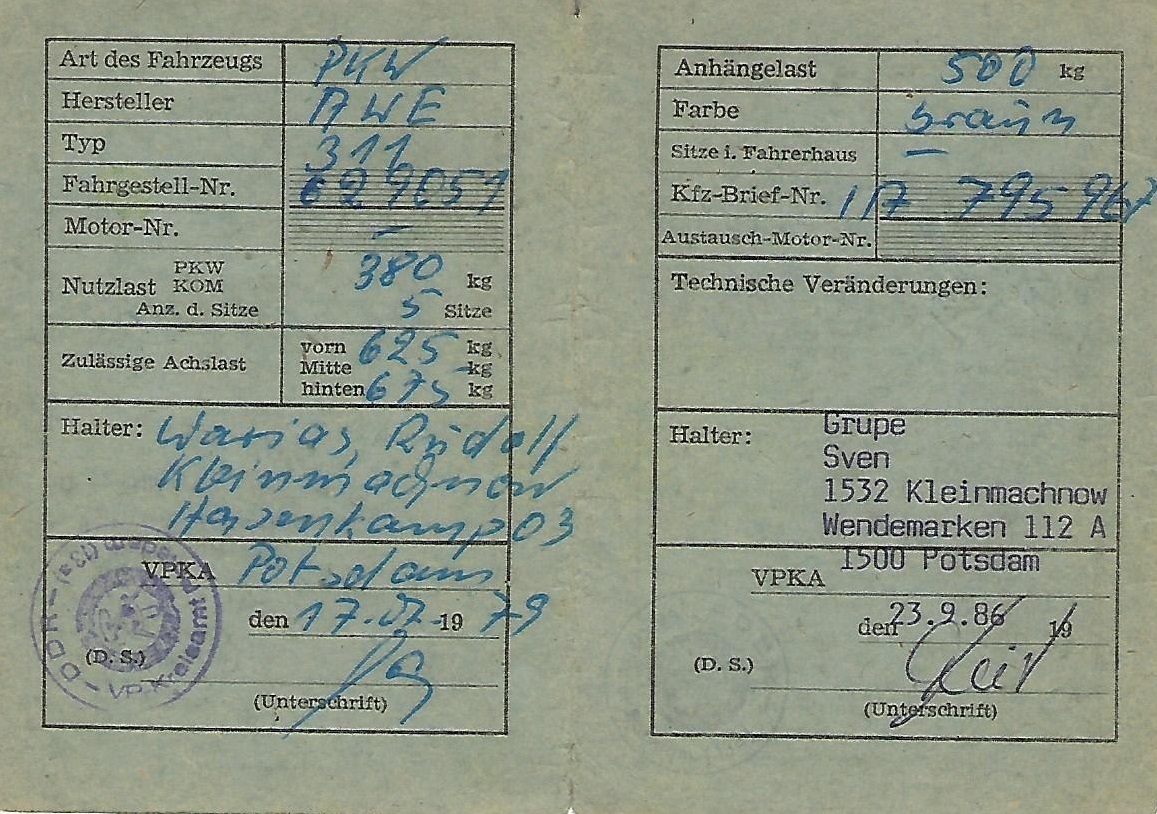 Art des Fahrzeugs PKW
Hersteller AWE
Typ 311
Fahrgestell-Nr. 629051
Motor-Nr. –
Nutzlast PKW
KOM 380 kg
Anz. d. Sitze 5 Sitze
Zulässige Achslast vorn 625 kg
Mitte – kg
hinten 675 kg
Halter: Rudolf
Kleinmachnow
Hasenkamp 03
VPKA Potsdam
den 17.07.1979
(D. S.)
(Unterschrift)
DDR – VP-Kreisamt Potsdam
Anhängelast 500 kg
Farbe braun
Sitze i. Fahrerhaus –
Kfz-Brief-Nr. 795967
Austausch-Motor-Nr.
Technische Veränderungen:
Halter: Grupe
Sven
1532 Kleinmachnow
Wendemarken 112 A
VPKA 1500 Potsdam
den 23.9.86 19
(D. S.)
(Unterschrift)